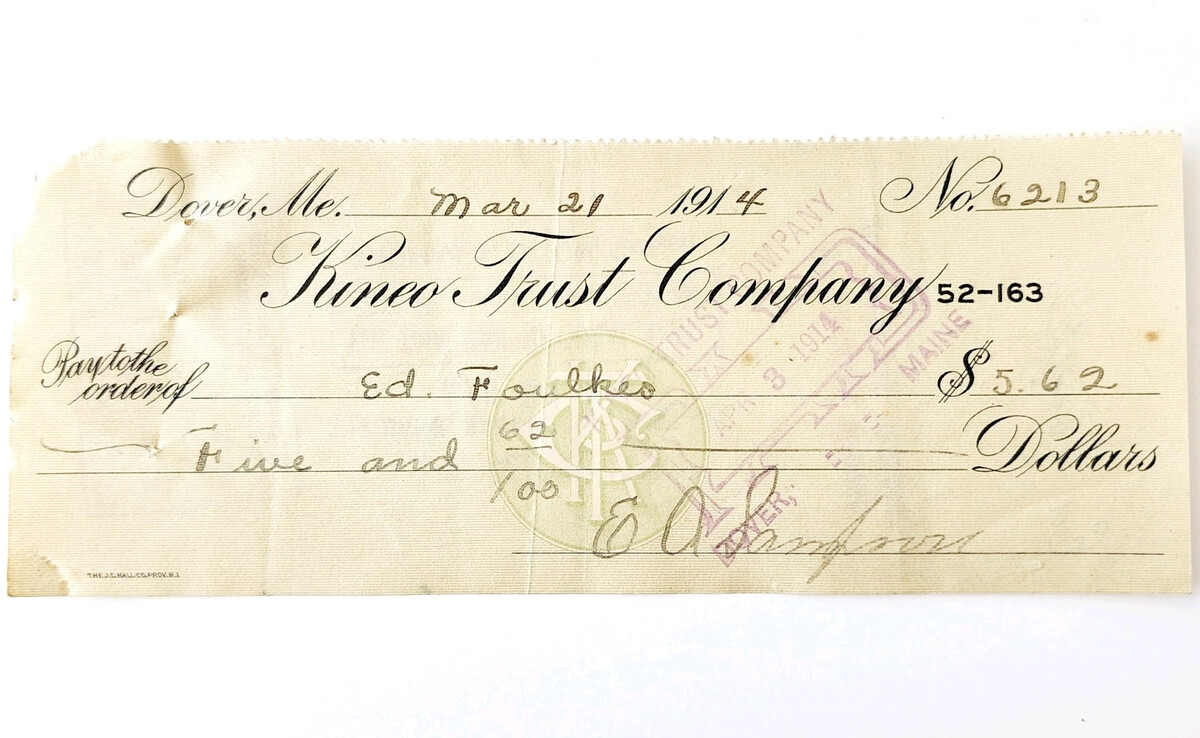 Dover, Me. Mar 21 1914 No. 6213
Kineo Trust Company 52-163
Pay to the order of Ed. Foulkes $ 5.62
Five and 62/100 Dollars
E A Sampson
THE J.C. HALL CO. PROV. R.I.
TRUST COMPANY
APR 8 1914
DOVER, MAINE